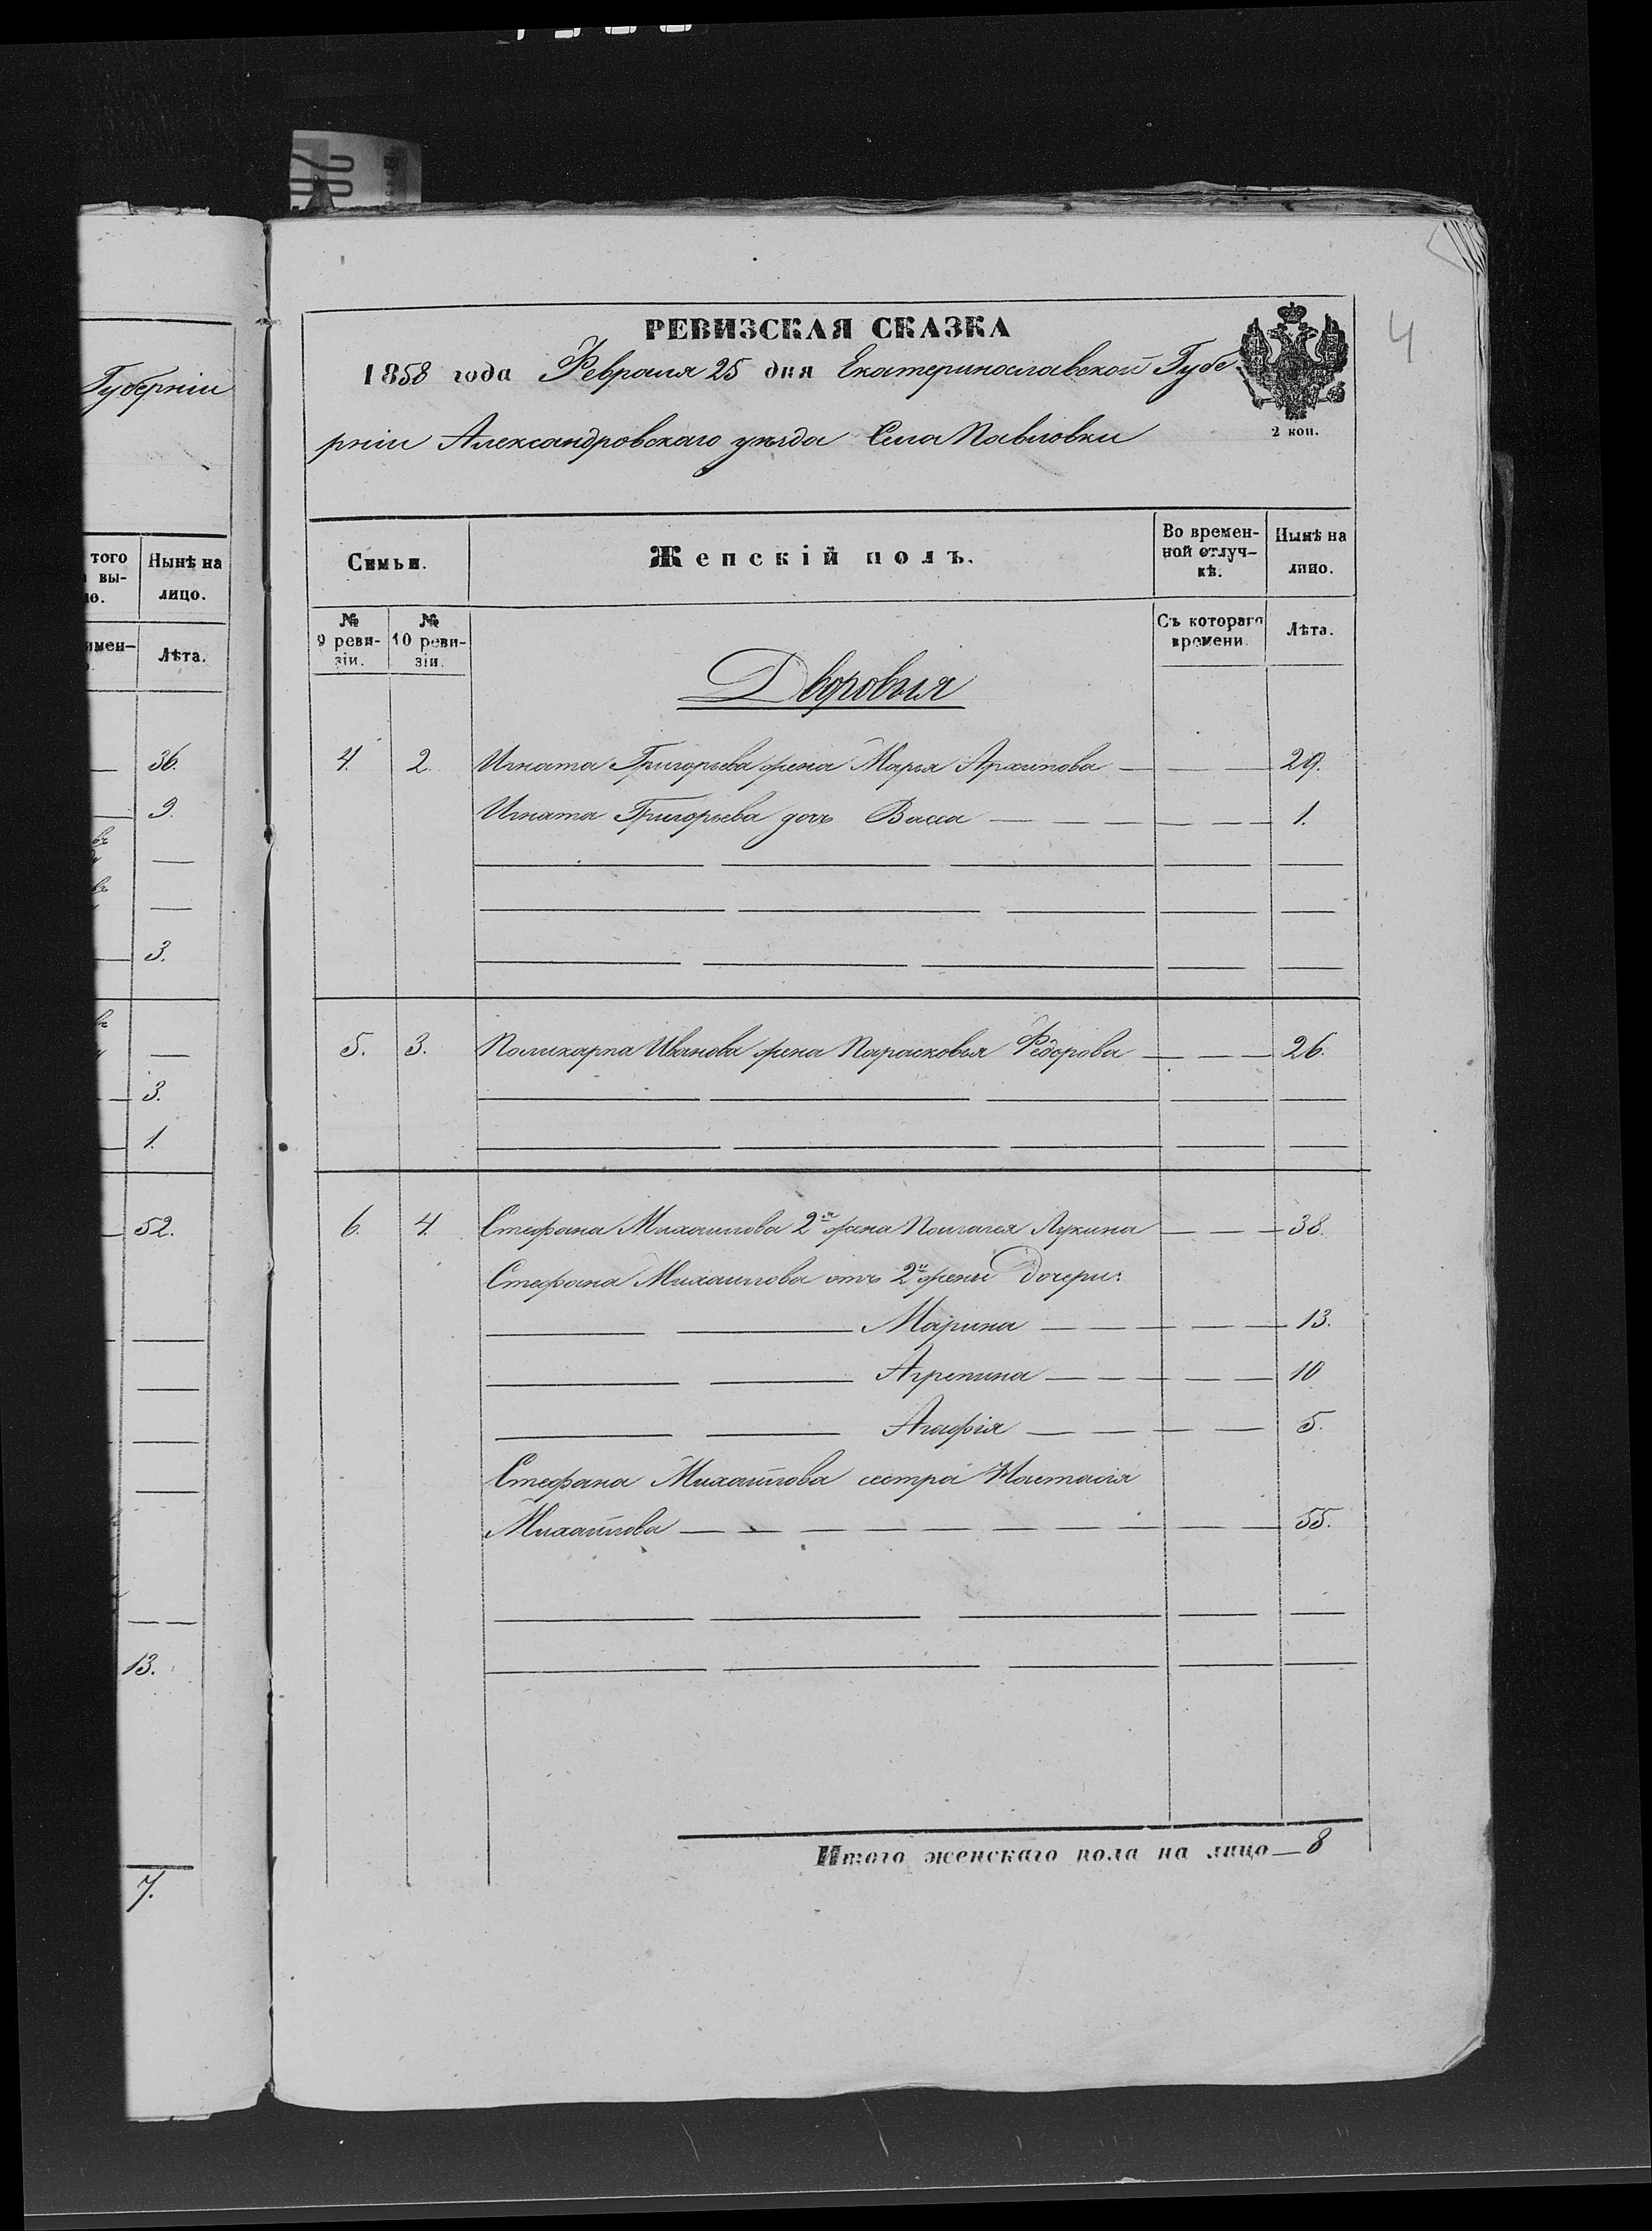 Губерніи
того
вы-
Нынѣ на
лицо.
имен-
Лѣта.
36.
9.
3.
3.
1.
52.
13.
7.
4
РЕВИЗСКАЯ СКАЗКА
1858 года Февраля 25 дня Екатеринославской Губе
рніи Александровскаго уѣзда Села Павловки
2 коп.
Семьи.
Женскій полъ.
Во времен-
ной отлуч-
кѣ.
Нынѣ на
лицо.
№
9 реви-
зіи.
№
10 реви-
зіи.
Съ котораго
времени.
Лѣта.
Дворовыя
4. 2. Игната Григорьева жена Марья Архипова — — 29.
Игната Григорьева дочь Васса — — — — — — 1.
5. 3. Поликарпа Иванова жена Парасковья Федорова — — — 26.
6. 4. Стефана Михаилова 2я жена Палагея Лукина — — — 38.
Стефана Михаилова отъ 2й жены Дочери:
Марина — — — — — 13.
Агрепина — — — — — 10
Агафія — — — — — 5.
Стефана Михайлова сестра Настасія
Михайлова — — — — — — — — — 55.
Итого женскаго пола на лицо — 8